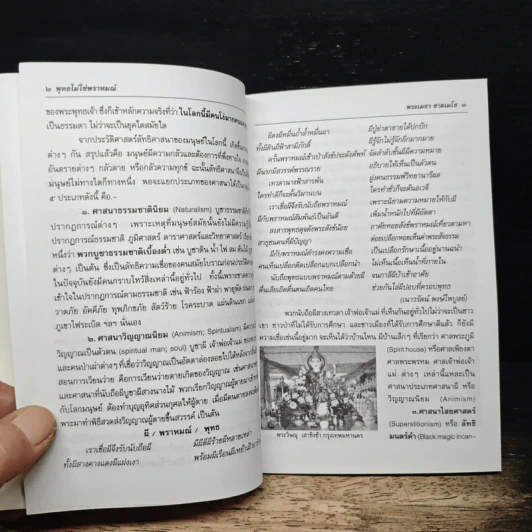 ๒ พุทธไม่ใช่พราหมณ์
ของพระพุทธเจ้า ซึ่งก็เข้าหลักความจริงที่ว่า ในโลกนี้มีคนโง่มากกว่า
เป็นธรรมดา ไม่ว่าจะเป็นยุคใดสมัยใด
จากประวัติศาสตร์ลัทธิศาสนาของมนุษย์ในโลกนี้ เกิดขึ้น
ต่างๆ กัน สรุปแล้วคือ มนุษย์มีความกลัวและต้องการที่พึ่งทางใจ
อันตรายต่างๆ กลัวตาย หรือกลัวความทุกข์ ฉะนั้นลัทธิศาสนา
มนุษย์ไม่ทางใดก็ทางหนึ่ง พอจะแยกประเภทของศาสนาได้เป็น
๕ ประเภทดังนี้ คือ.-
๑. ศาสนาธรรมชาตินิยม (Naturalism) บูชาธรรมชาติ
ปรากฏการณ์ต่างๆ เพราะเหตุที่มนุษย์สมัยนั้นยังไม่มีความรู้
ปรากฏการณ์ธรรมชาติ ภูมิศาสตร์ ดาราศาสตร์และวิทยาศาสตร์
หนึ่งว่า พวกบูชาธรรมชาติเบื้องต่ำ เช่น บูชาดิน น้ำ ไฟ ลม ต้นไม้
ต่างๆ เป็นต้น ซึ่งเป็นลัทธิความเชื่อของคนสมัยโบราณก่อนประวัติศาสตร์
ในปัจจุบันยังมีคนกราบไหว้สิ่งเหล่านี้อยู่ทั่วไป ทั้งนี้เพราะขาดความ
เข้าใจในปรากฏการณ์ตามธรรมชาติ เช่น ฟ้าร้อง ฟ้าผ่า พายุพัด
วาตภัย อัคคีภัย ทุพภิกขภัย สัตว์ร้าย โรคระบาด แผ่นดินแยก
ภูเขาไฟระเบิด ฯลฯ นั่นเอง
๒. ศาสนาวิญญาณนิยม (Animism; Spiritualism) มีความ
วิญญาณเป็นตัวตน (spiritual man; soul) บูชาผี เจ้าพ่อเจ้าแม่ต่างๆ
และคนป่าเผ่าต่างๆ ที่เชื่อว่าวิญญาณเป็นอัตตาล่องลอยไปได้หลังจาก
สอนการเวียนว่าย คือการเวียนว่ายตายเกิดของวิญญาณ เช่นศาสนา
และศาสนาที่นับถือผีบูชาผีสางนางไม้ พวกเรียกวิญญาณผู้ตายมาเข้า
กับโลกมนุษย์ ต้องทำบุญอุทิศส่วนกุศลให้ผู้ตาย เมื่อมีคนตายลง
พระมาทำพิธีสวดส่งวิญญาณผู้ตายขึ้นสวรรค์ เป็นต้น
ผี / พราหมณ์ / พุทธ
เราเชื่อผีจึงรับนับถือผี มีผีดีผีร้ายผีหลายเหล่า
ทั้งผีสางคางแดงผีแม่งเงา พร้อมผีเรือนผีเหย้า
พระเมธา ชาตเมโธ ๓
ผีดงผีหมื่นถ้ำล้ำหมื่นผา มีปู่ย่าตายายได้ปกปัก
ทั้งผีดินผีฟ้าสามิภักดิ์ ผีรู้จักไม่รู้จักอีกมากมาย
ครั้นพราหมณ์เข้าเป่าสังข์ประดังศัพท์ จัดลำดับชั้นผีมีความหมาย
ผีนรกผีสวรรค์พรรณราย อธิบายให้เห็นเป็นตัวตน
เทวดานางฟ้าเสาวพัน ยูงคนธรรพ์วิทยานาริผล
ใครทำดีก็จะดั้นวิมานบน ใครทำชั่วก็จะดันอเวจี
เราเชื่อผีจึงรับนับถือพราหมณ์ เพราะนิยามความหมายให้กับผี
มีกับพราหมณ์สัมพันธ์เป็นอันดี เพิ่มน้ำหนักไปที่มีอัตตา
ลงสารพุทธคุณังพระสังข์น้อย ภาคย์ทยอยสังข์พราหมณ์เที่ยวตามหา
สาธุชนคนที่มีปัญญา ค่อยปลีกออกเหยถ้าคำพระสัทธรรม
มีกับพราหมณ์ดำรงคงความเชื่อ เป็นเปลือกเรียกเนื้ออยู่นานฉนำ
คนเห็นเปลือกคิดเปลือกแบกเปลือกนำ ไม่เห็นเนื้อเห็นน้ำที่ภายใน
นับถือพุทธแบบพราหมณ์ตามด้วยผี จนภาสีผีบ้านเข้าอาศัย
คืนเสียเถิดต้นตอเถิดคนไทย ช่วยกันไล่ผีปลอบที่ครอบพุทธ
(เนาวรัตน์ พงษ์ไพบูลย์)
พวกนับถือผีสางเทวดา เจ้าพ่อเจ้าแม่ ที่เห็นกันอยู่ทั่วไปไม่ว่าจะเป็นชาว
เขา ชาวป่าที่ไม่ได้รับการศึกษา และชาวเมืองที่ได้รับการศึกษาดีแล้ว ก็ยังมี
ความเชื่อเช่นนี้อยู่มาก จะเห็นได้ว่าบ้านไหน มีบ้านเล็กๆ ที่เรียกว่า ศาลพระภูมิ
(Spirit house) หรือศาลเพียงตา
ศาลพระพรหม ศาลเจ้าพ่อเจ้า
แม่ ต่างๆ เหล่านี้แหละเป็น
ศาสนาประเภทศาสนาผี หรือ
วิญญาณนิยม (Animism)
๓.ศาสนาไสยศาสตร์
(Superstitionism) หรือ ลัทธิ
มนตร์ดำ (Black magic incan-
พระวิษณุ เสาชิงช้า กรุงเทพมหานคร